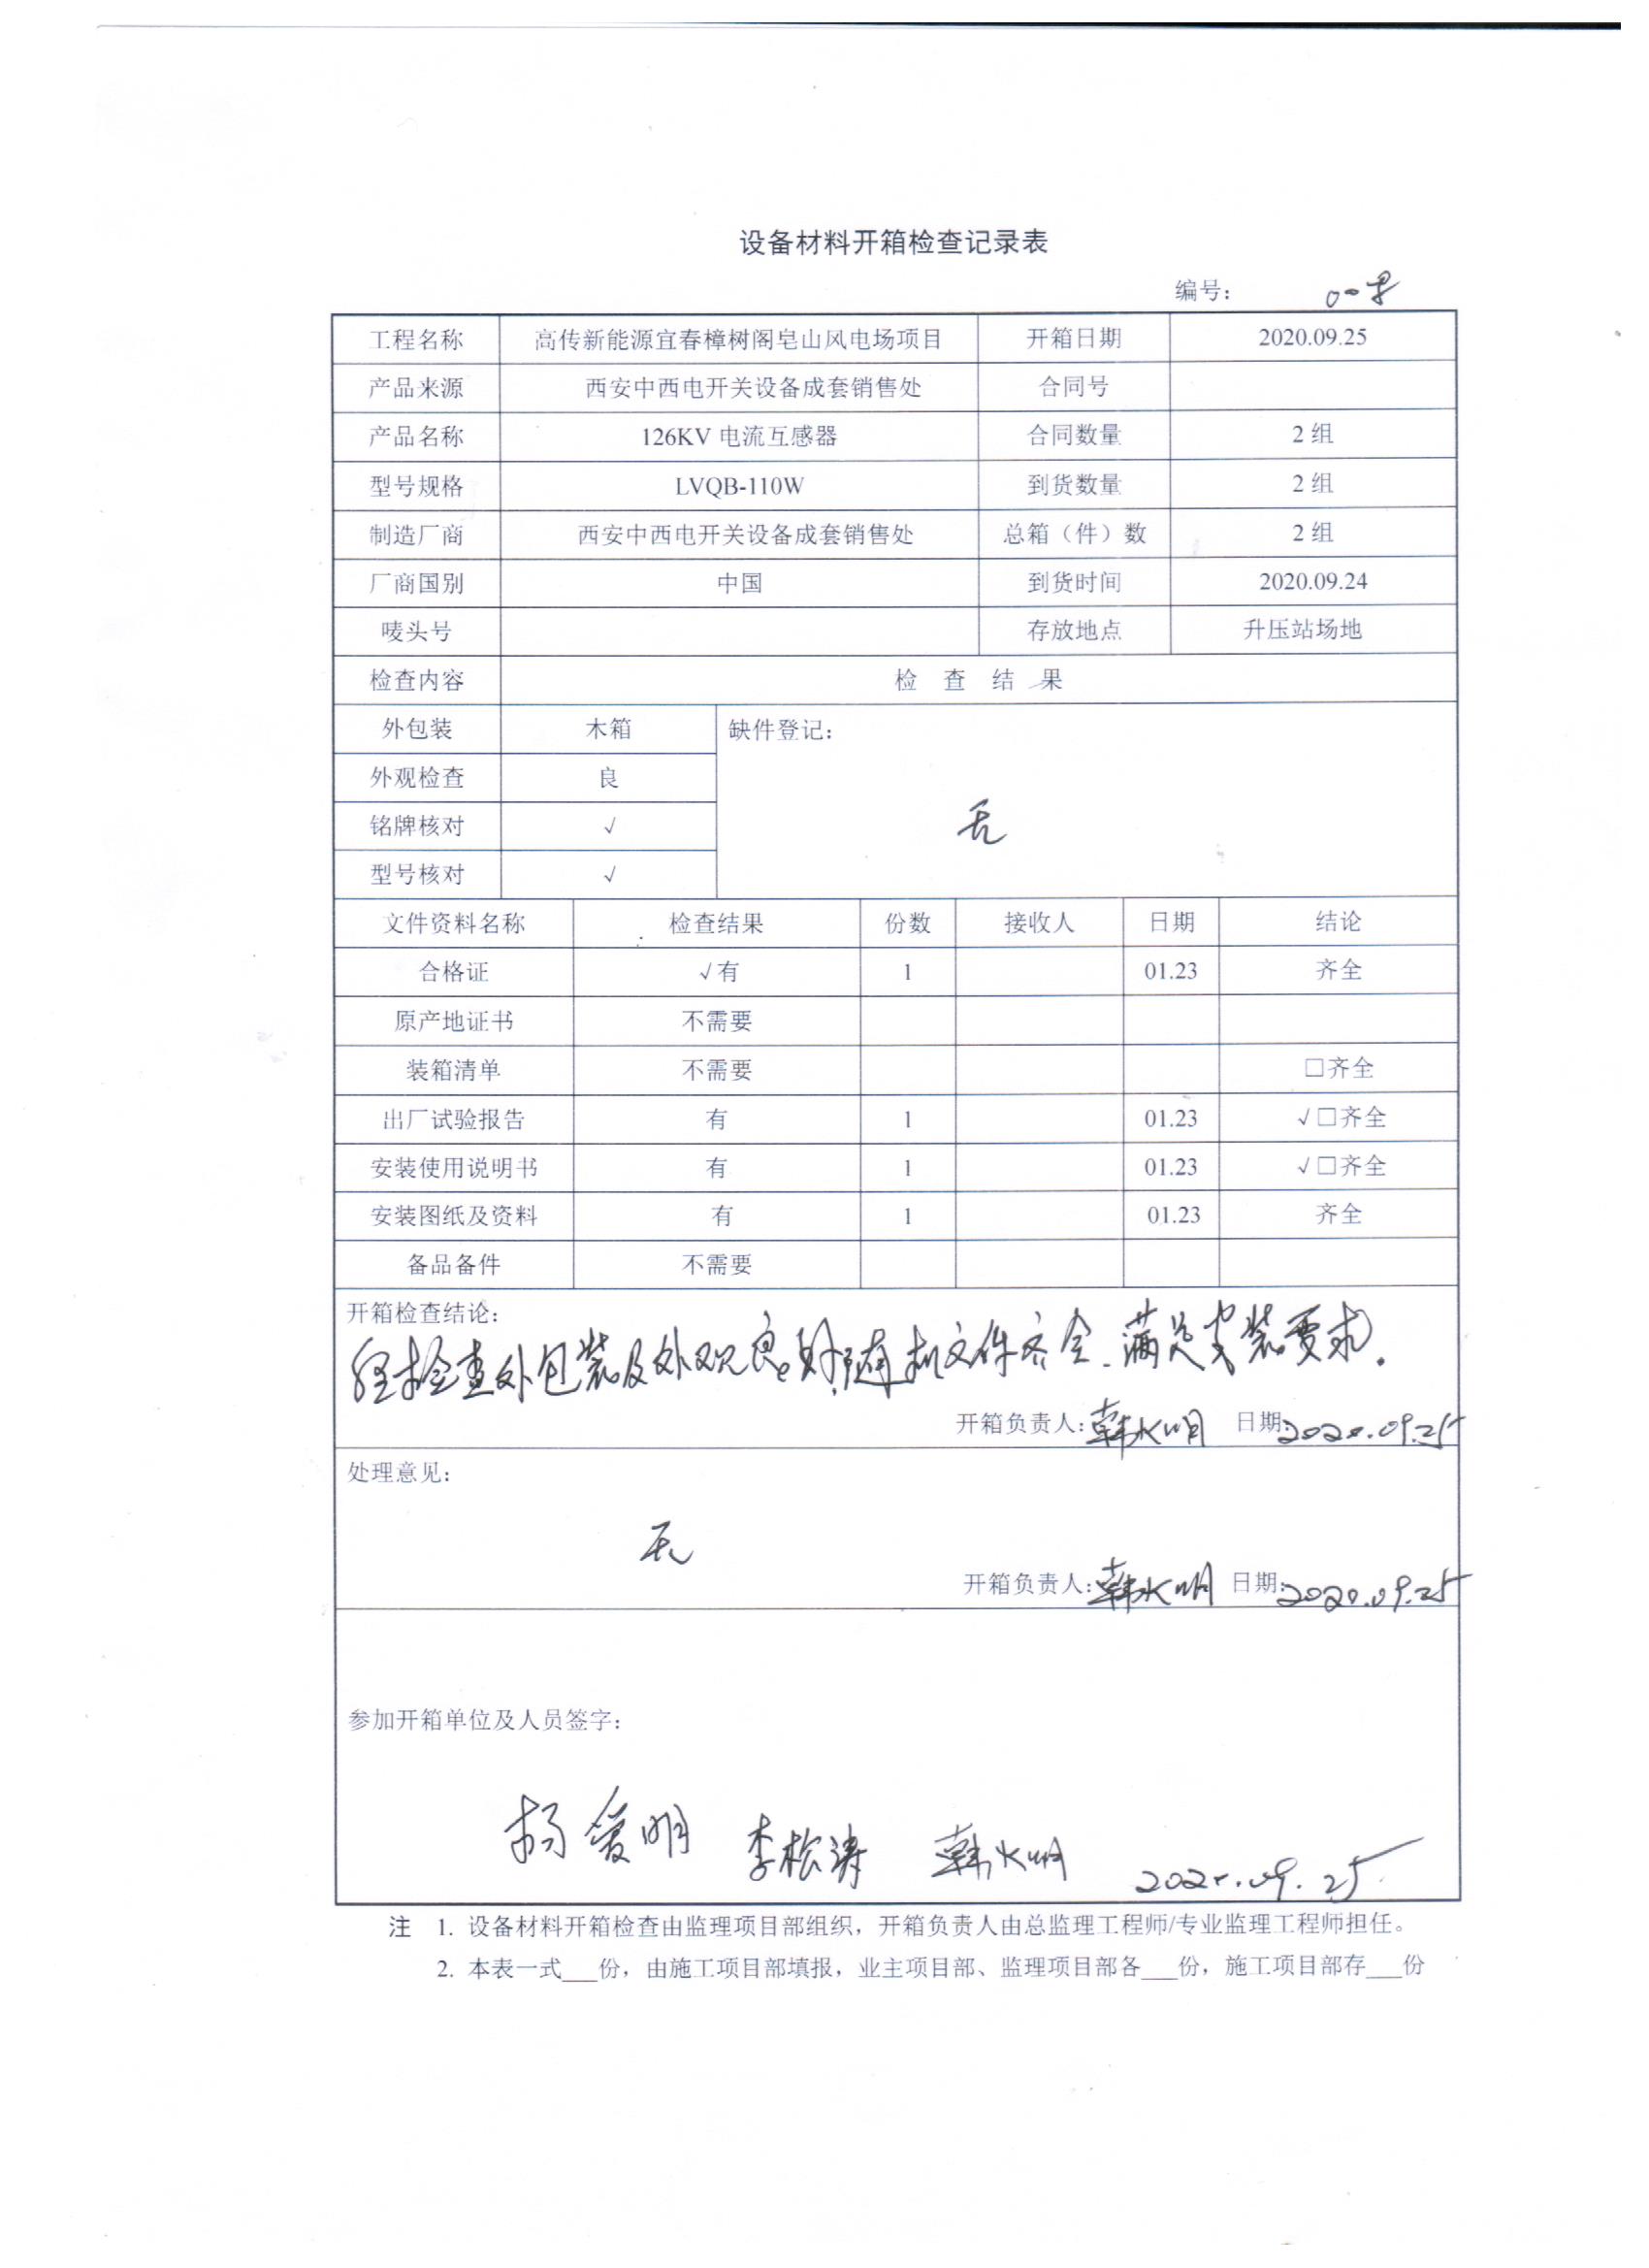 设备材料开箱检查记录表
编号：
工程名称 高传新能源宜春樟树阁皂山风电场项目 开箱日期 2020.09.25
产品来源 西安中西电开关设备成套销售处 合同号
产品名称 126KV 电流互感器 合同数量 2 组
型号规格 LVQB-110W 到货数量 2 组
制造厂商 西安中西电开关设备成套销售处 总箱（件）数 2 组
厂商国别 中国 到货时间 2020.09.24
唛头号 存放地点 升压站场地
检查内容 检 查 结 果
外包装 木箱 缺件登记：
外观检查 良
铭牌核对 √ 无
型号核对 √
文件资料名称 检查结果 份数 接收人 日期 结论
合格证 √有 1 01.23 齐全
原产地证书 不需要
装箱清单 不需要 □齐全
出厂试验报告 有 1 01.23 √□齐全
安装使用说明书 有 1 01.23 √□齐全
安装图纸及资料 有 1 01.23 齐全
备品备件 不需要
开箱检查结论：
经检查外包装及外观良好，随机文件齐全、满足安装要求．
开箱负责人： 日期：2020.09.25
处理意见：
无
开箱负责人： 日期：2020.09.25
参加开箱单位及人员签字：
杨爱明 李松涛 2020.09.25
注 1. 设备材料开箱检查由监理项目部组织，开箱负责人由总监理工程师/专业监理工程师担任。
2. 本表一式___份，由施工项目部填报，业主项目部、监理项目部各___份，施工项目部存___份